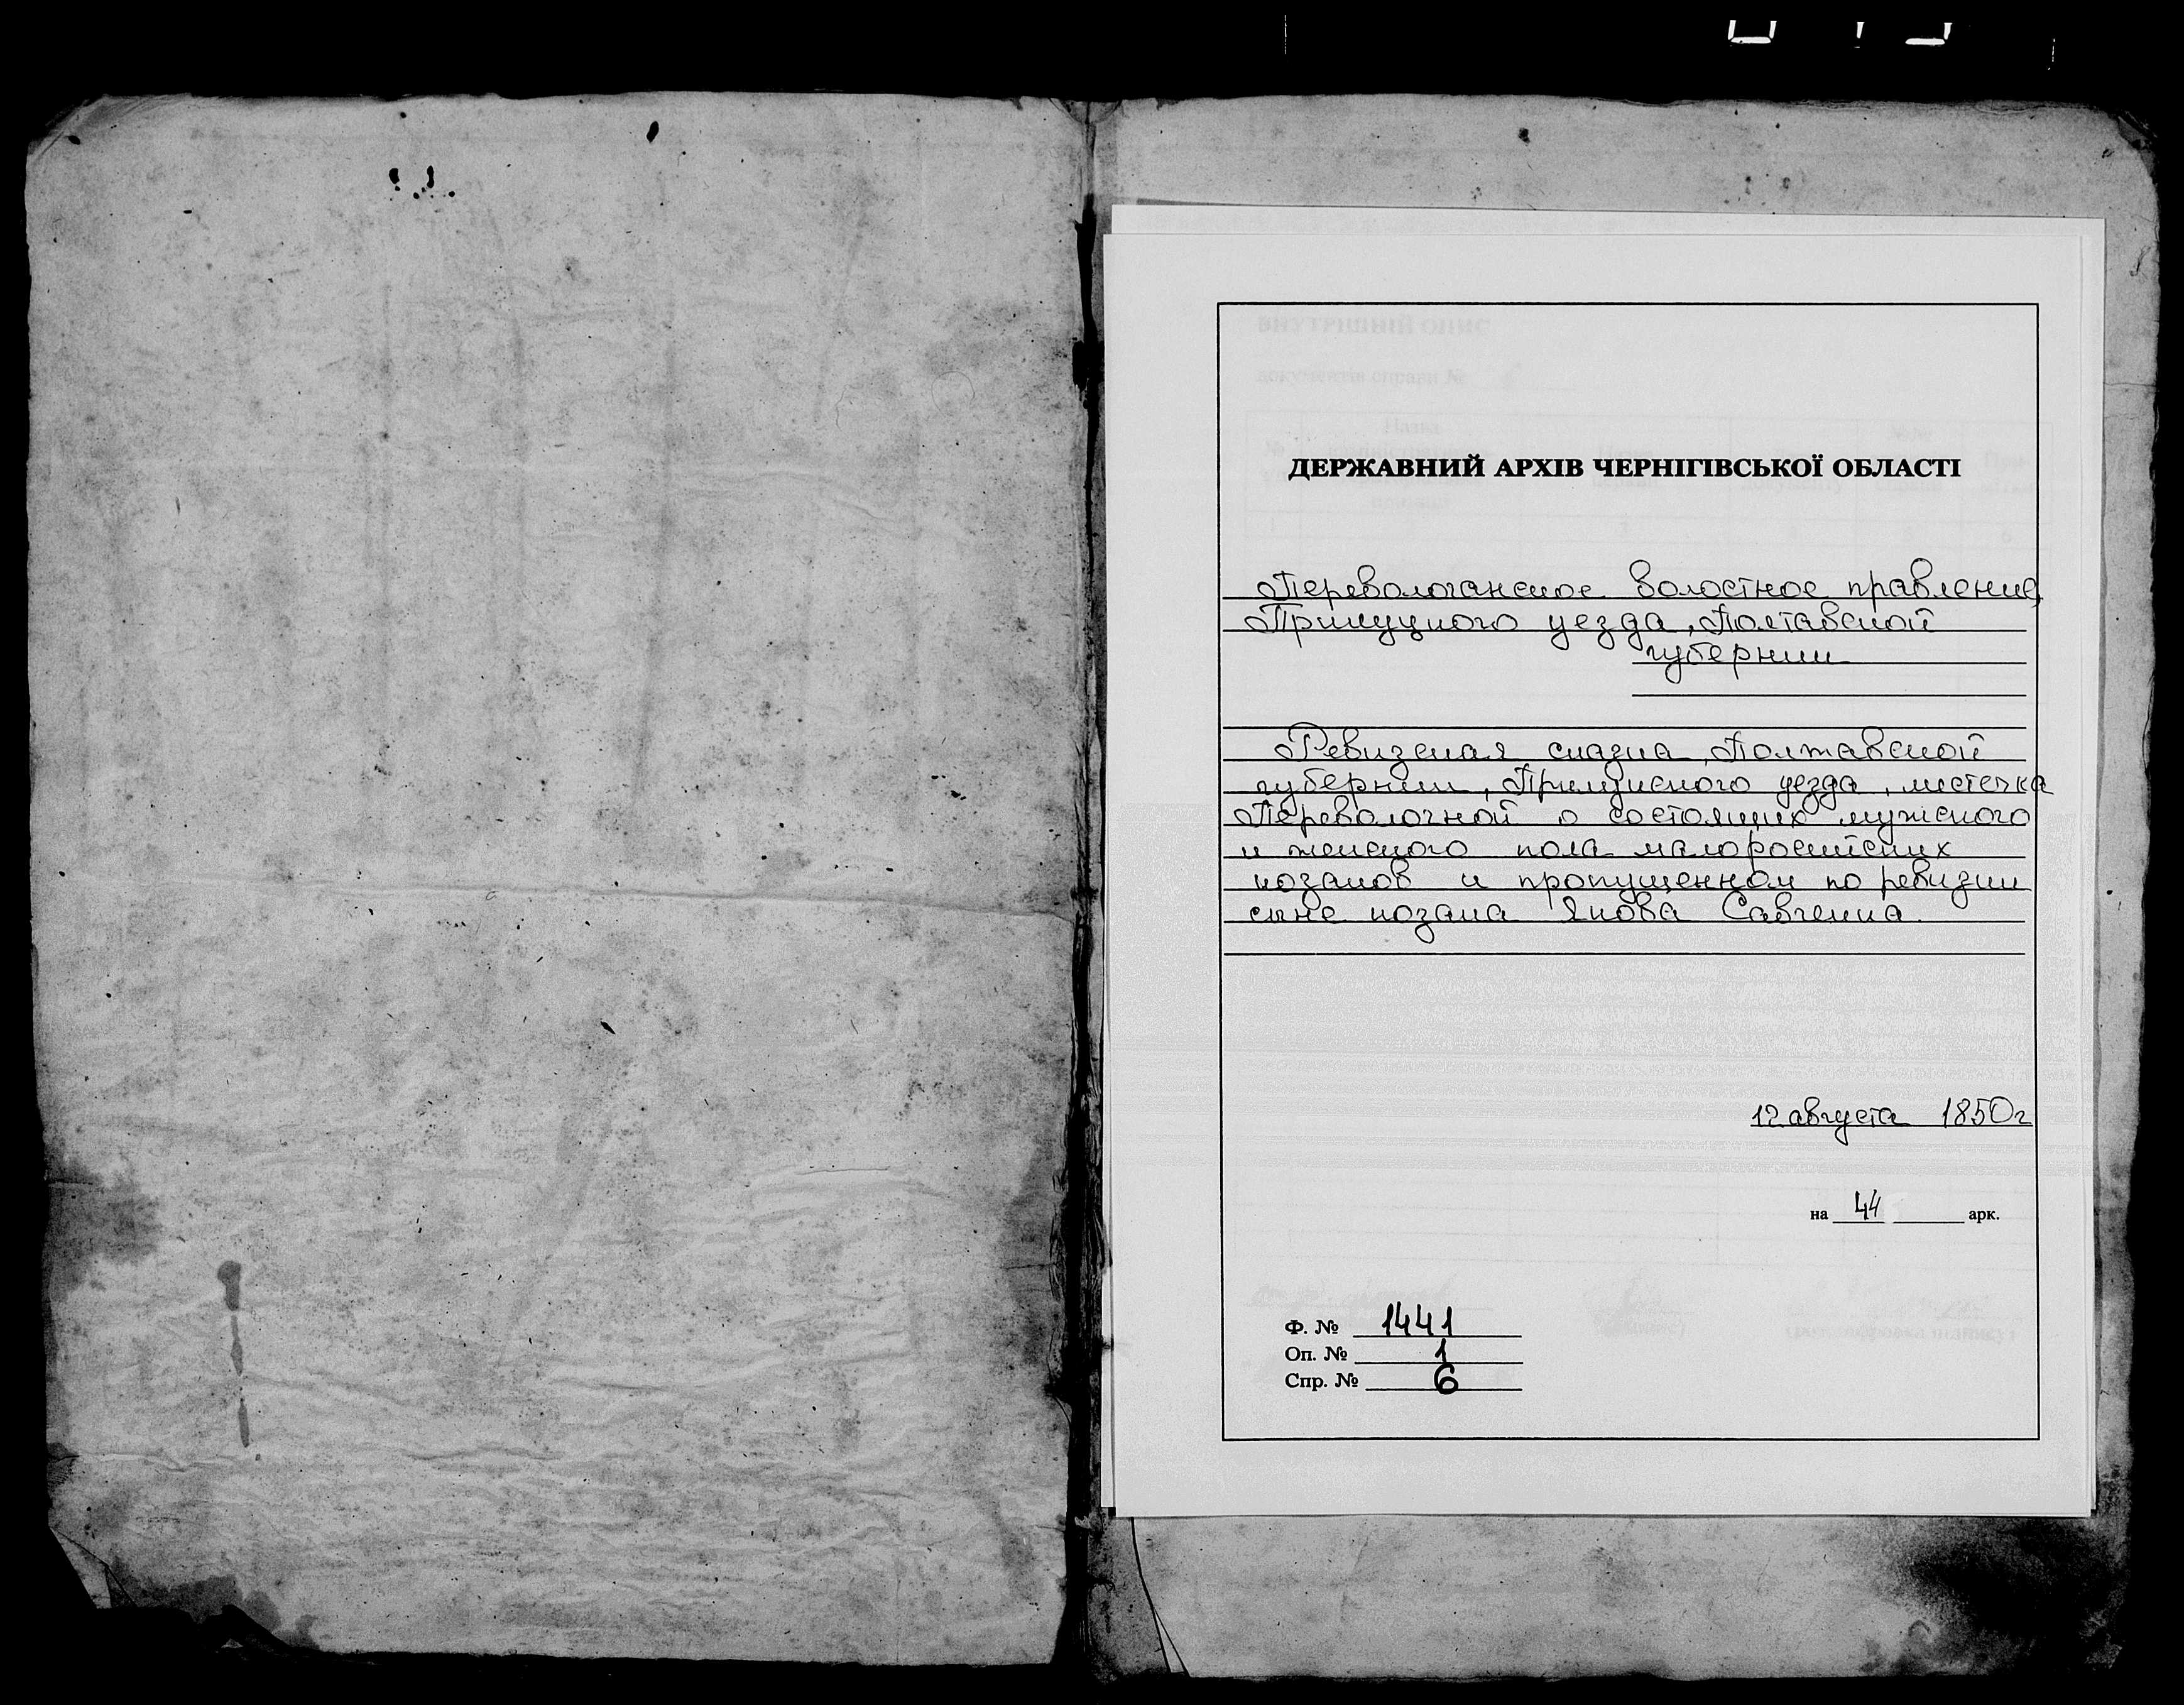 ДЕРЖАВНИЙ АРХІВ ЧЕРНІГІВСЬКОЇ ОБЛАСТІ
Переволочанское волостное правление,
Прилуцкого уезда, Полтавской
губернии
Ревизская сказка, Полтавской
губернии, Прилуцкого уезда, местечка
Переволочной о состоящих мужского
и женского пола малоросийских
козаков и пропущенном по ревизии
сыне козака Якова Савченка.
12 августа 1850г
на 44 арк.
Ф. № 1441
Оп. № 1
Спр. № 6